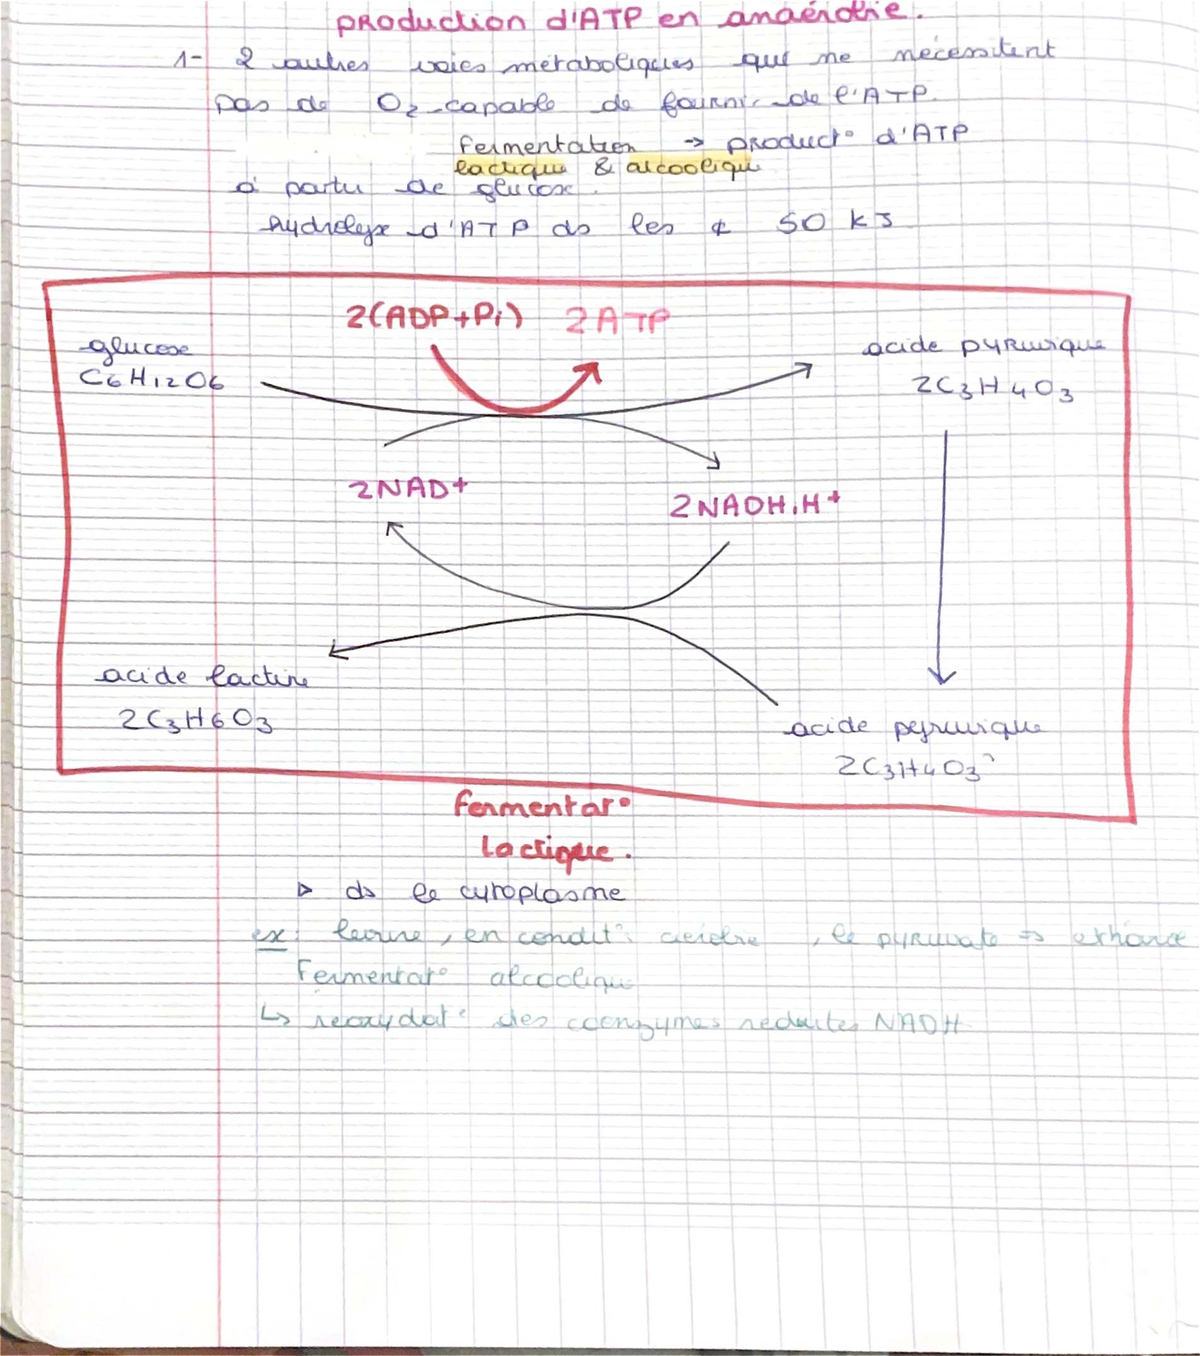 production d'ATP en anaérobie.
1- 2 autres voies métaboliques qui ne nécessitent
pas de O2 capable de fournir de l'ATP.
fermentation → product° d'ATP
lactique & alcoolique
à partir de glucose.
hydrolyse d'ATP ds les ¢ 50 kJ
2(ADP+Pi) 2ATP
glucose
C6H12O6
acide pyruvique
2C3H4O3
2NAD+
2NADH,H+
acide lactique
2C3H6O3
acide pyruvique
2C3H4O3
fermentat°
Lactique.
▷ ds le cytoplasme
ex: levure, en condit°, le pyruvate ⇒
Fermentat° alcoolique
↳ reoxydat° des coenzymes reduites NADH